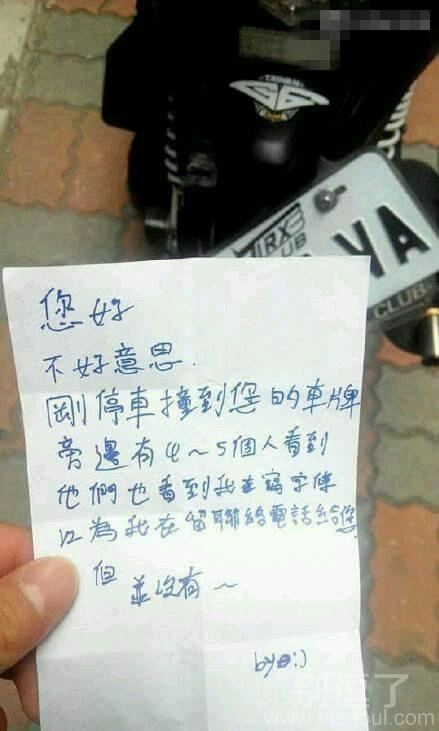 TAINAN
G6
RX
CLUB
VA
CLUB
您好
不好意思.
剛停車撞到您的車牌
旁邊有4~5個人看到
他們也看到我在寫字條
以為我在留聯絡電話給您.
但並沒有~
by :)
别逗了
www.biedoul.com